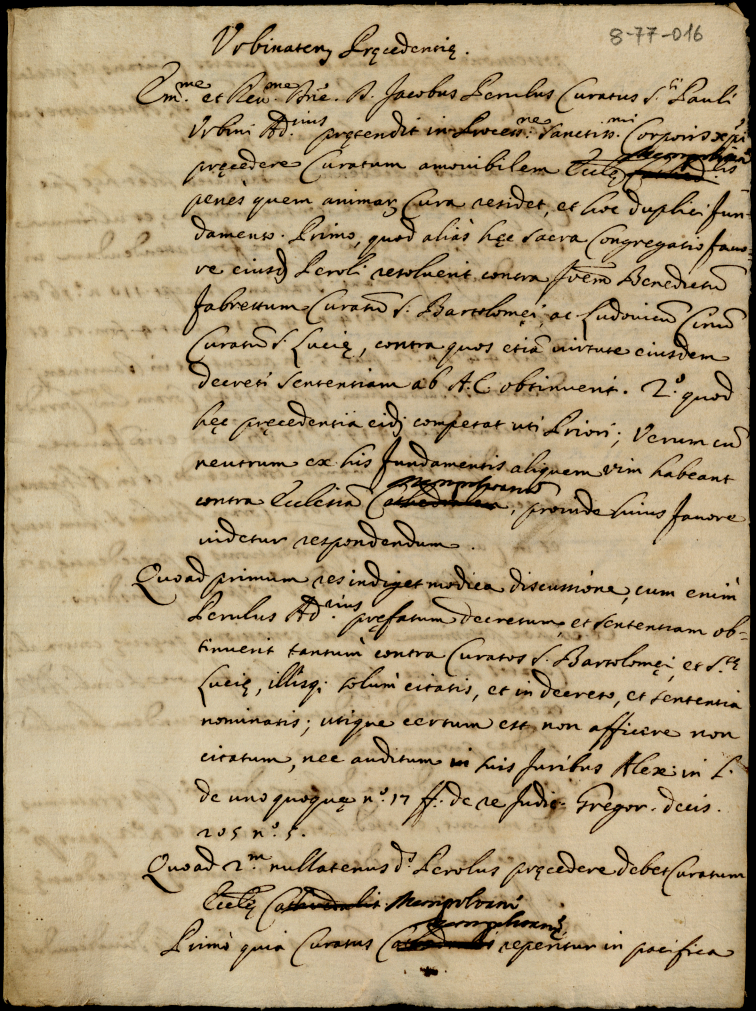 8-77-016
Urbinaten. Pręcedentię.
Em.me et Rev.me Dne. D. Jacobus Perulus Curatus S.ti Pauli
Urbini Ad.rius pretendit in Process.ne Sanctiss.mi Corporis xpi
pręcedere Curatum amovibilem Ecclę Metropolitanę
penès quem animar. Cura residet, et hoc duplici fun-
damento. Primo, quod aliàs hęc sacra Congregatio favo-
re eiusd. Peroli resolverit contra Joem Benedictũ
Fabrettum Curatũ S. Bartolomęi, ac Ludovicũ Cinũ
Curatũ S. Lucię, contra quos etiã virtute eiusdem
decreti sententiam ab A.C. obtinuerit. 2.º quod
hęc pręcedentia eid. competat uti Priori; Verum cũ
neutrum ex his fundamentis aliquem vim habeant
contra Ecclesiã Metropolitanã, proinde huius favore
videtur respondendum.
Quoad primum res indiget modica discussione, cum enim
Perulus Ad.rius pręfatum decretum, et sententiam ob-
tinuerit tantum contra Curatos S. Bartolomęi, et S.cę
Lucię, illisq; solum citatis, et in decreto, et sententia
nominatis; utique certum est non afficere non
citatum, nec auditum in suis Juribus Alex. in L.
de unoquoquę nº. 17 ff. de re Judic. Gregor. decis.
205 nº. 5.
Quoad 2.m nullatenus d.s Perolus pręcedere debet Curatum
Ecclę Cathedralis Metropolitanę
Primò quia Curatus Cathedralis Metropolitanę reperitur in pacifica